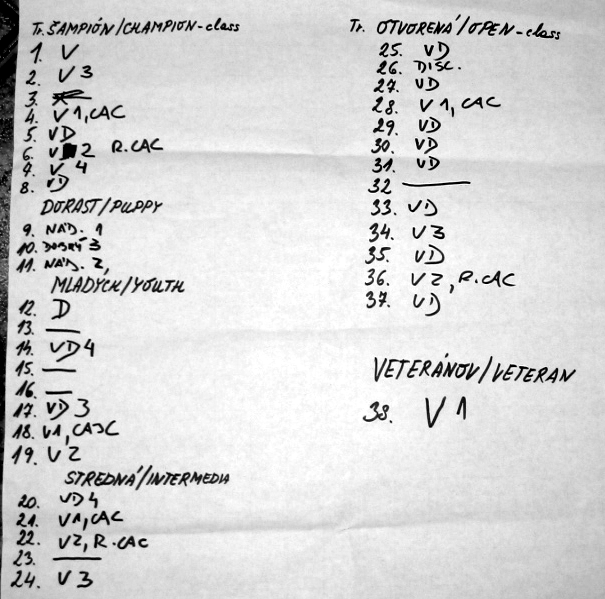 Tr. ŠAMPIÓN/CHAMPION-class
1. V
2. V 3
3.
4. V 1, CAC
5. VD
6. V 2 R.CAC
7. V 4
8. VD
DORAST/PUPPY
9. NÁD. 1
10. DOBRÝ 3
11. NÁD. 2,
MLADÝCH/YOUTH
12. D
13. —
14. VD 4
15. —
16. —
17. VD 3
18. V1, CAJC
19. V 2
STREDNÁ/INTERMEDIA
20. VD 4
21. V1, CAC
22. V2, R.CAC
23. —
24. V 3
Tr. OTVORENÁ/OPEN-class
25. VD
26. DISC.
27. VD
28. V 1, CAC
29. VD
30. VD
31. VD
32 —
33. VD
34. V 3
35. VD
36. V2, R.CAC
37. VD
VETERÁNOV/VETERAN
38. V 1